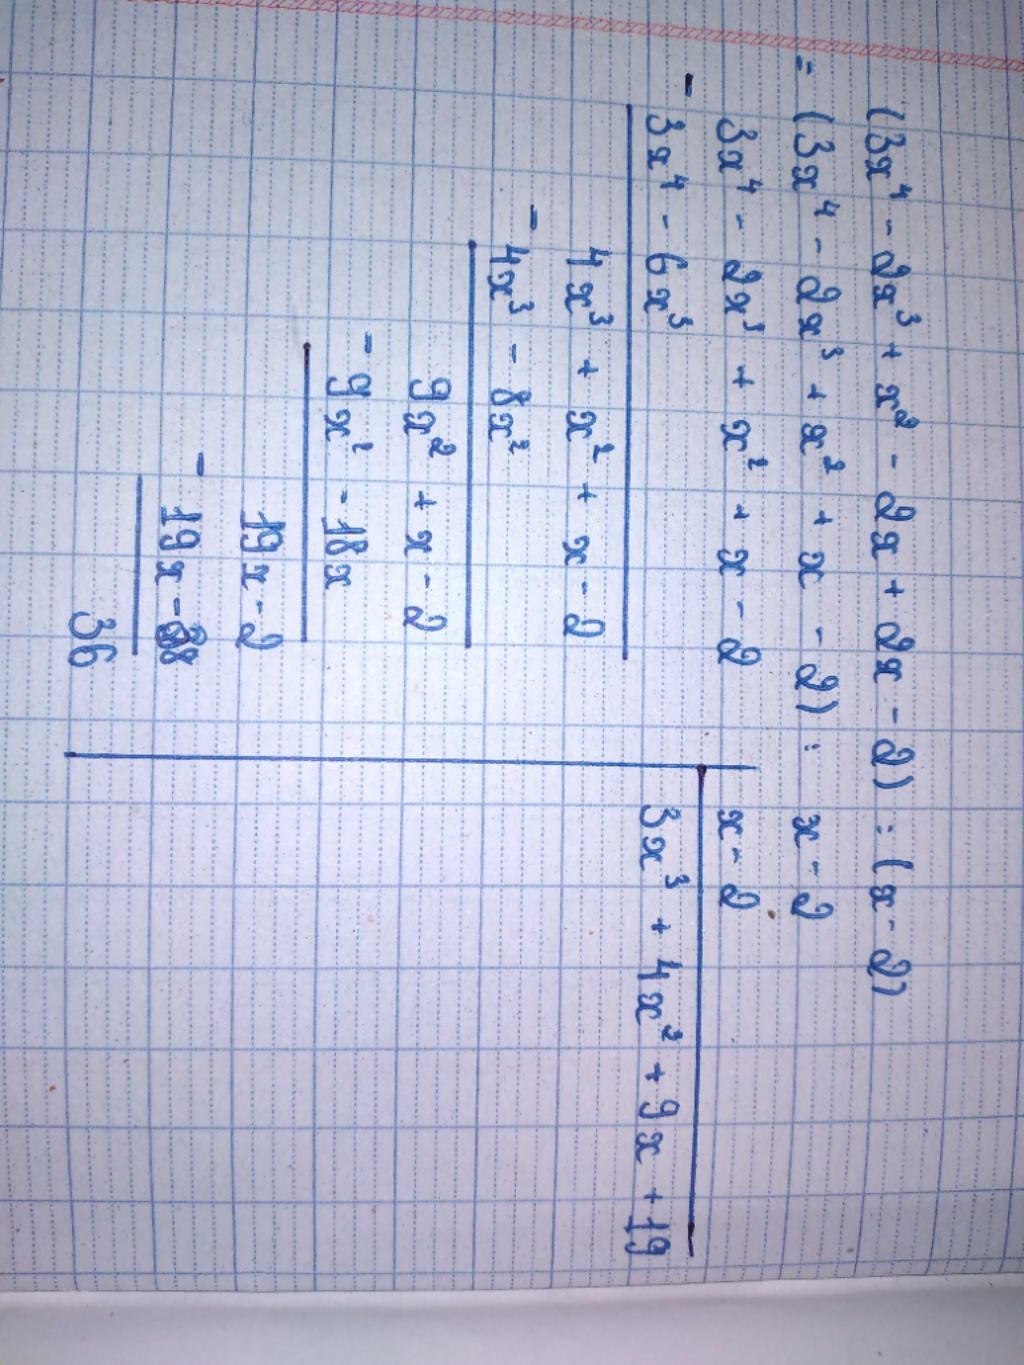 (3x⁴ - 2x³ + x² - 2x + 2x - 2) : (x - 2)
= (3x⁴ - 2x³ + x² + x - 2) : x - 2
3x⁴ - 2x³ + x² + x - 2 | x - 2
- 3x⁴ - 6x³ | 3x³ + 4x² + 9x + 19
4x³ + x² + x - 2
- 4x³ - 8x²
9x² + x - 2
- 9x² - 18x
19x - 2
- 19x - 38
36